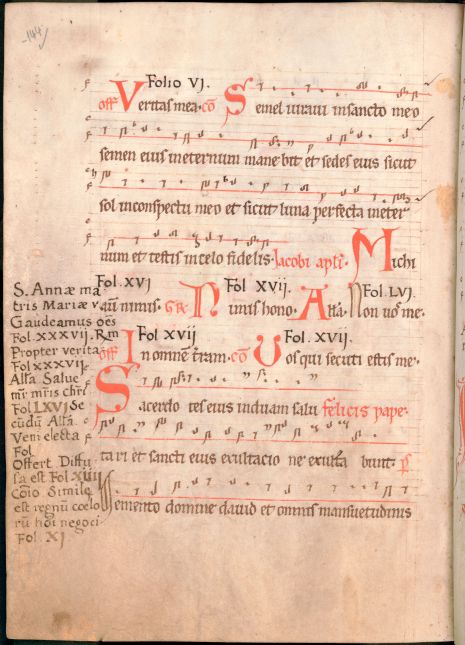 144
Folio VJ.
off Veritas mea. cō Semel iuraui in sancto meo
semen eius in eternum mane bit et sedes eius sicut
sol in conspectu meo et sicut luna perfecta in eter
num et testis in celo fidelis. Iacobi apli. Michi
Fol. XVJ Fol XVIJ. Fol. LVJ.
aū nimis. GR Nimis hono. Alla. Non uos me.
Fol XVIJ Fol. XVIJ.
off In omnē trram. cō Uos qui secuti estis me.
Sacerdo tes eius induam salu felicis pape.
tari et sancti eius exultacio ne exulta bunt. P
Memento domine dauid et omnis mansuetudinis
S. Annæ ma
tris Mariæ v.
Gaudeamus oēs
Fol. XXXVIJ. Rm
Propter verita
Fol XXXVIJ
Alla Salue
Fol LXVJ Se
cūdū Alla.
Veni electa
Fol
Offert. Diffu
sa est Fol XIIIJ
Cōio Simile
est regnū cœlo
rū hōi negoci
Fol XJ